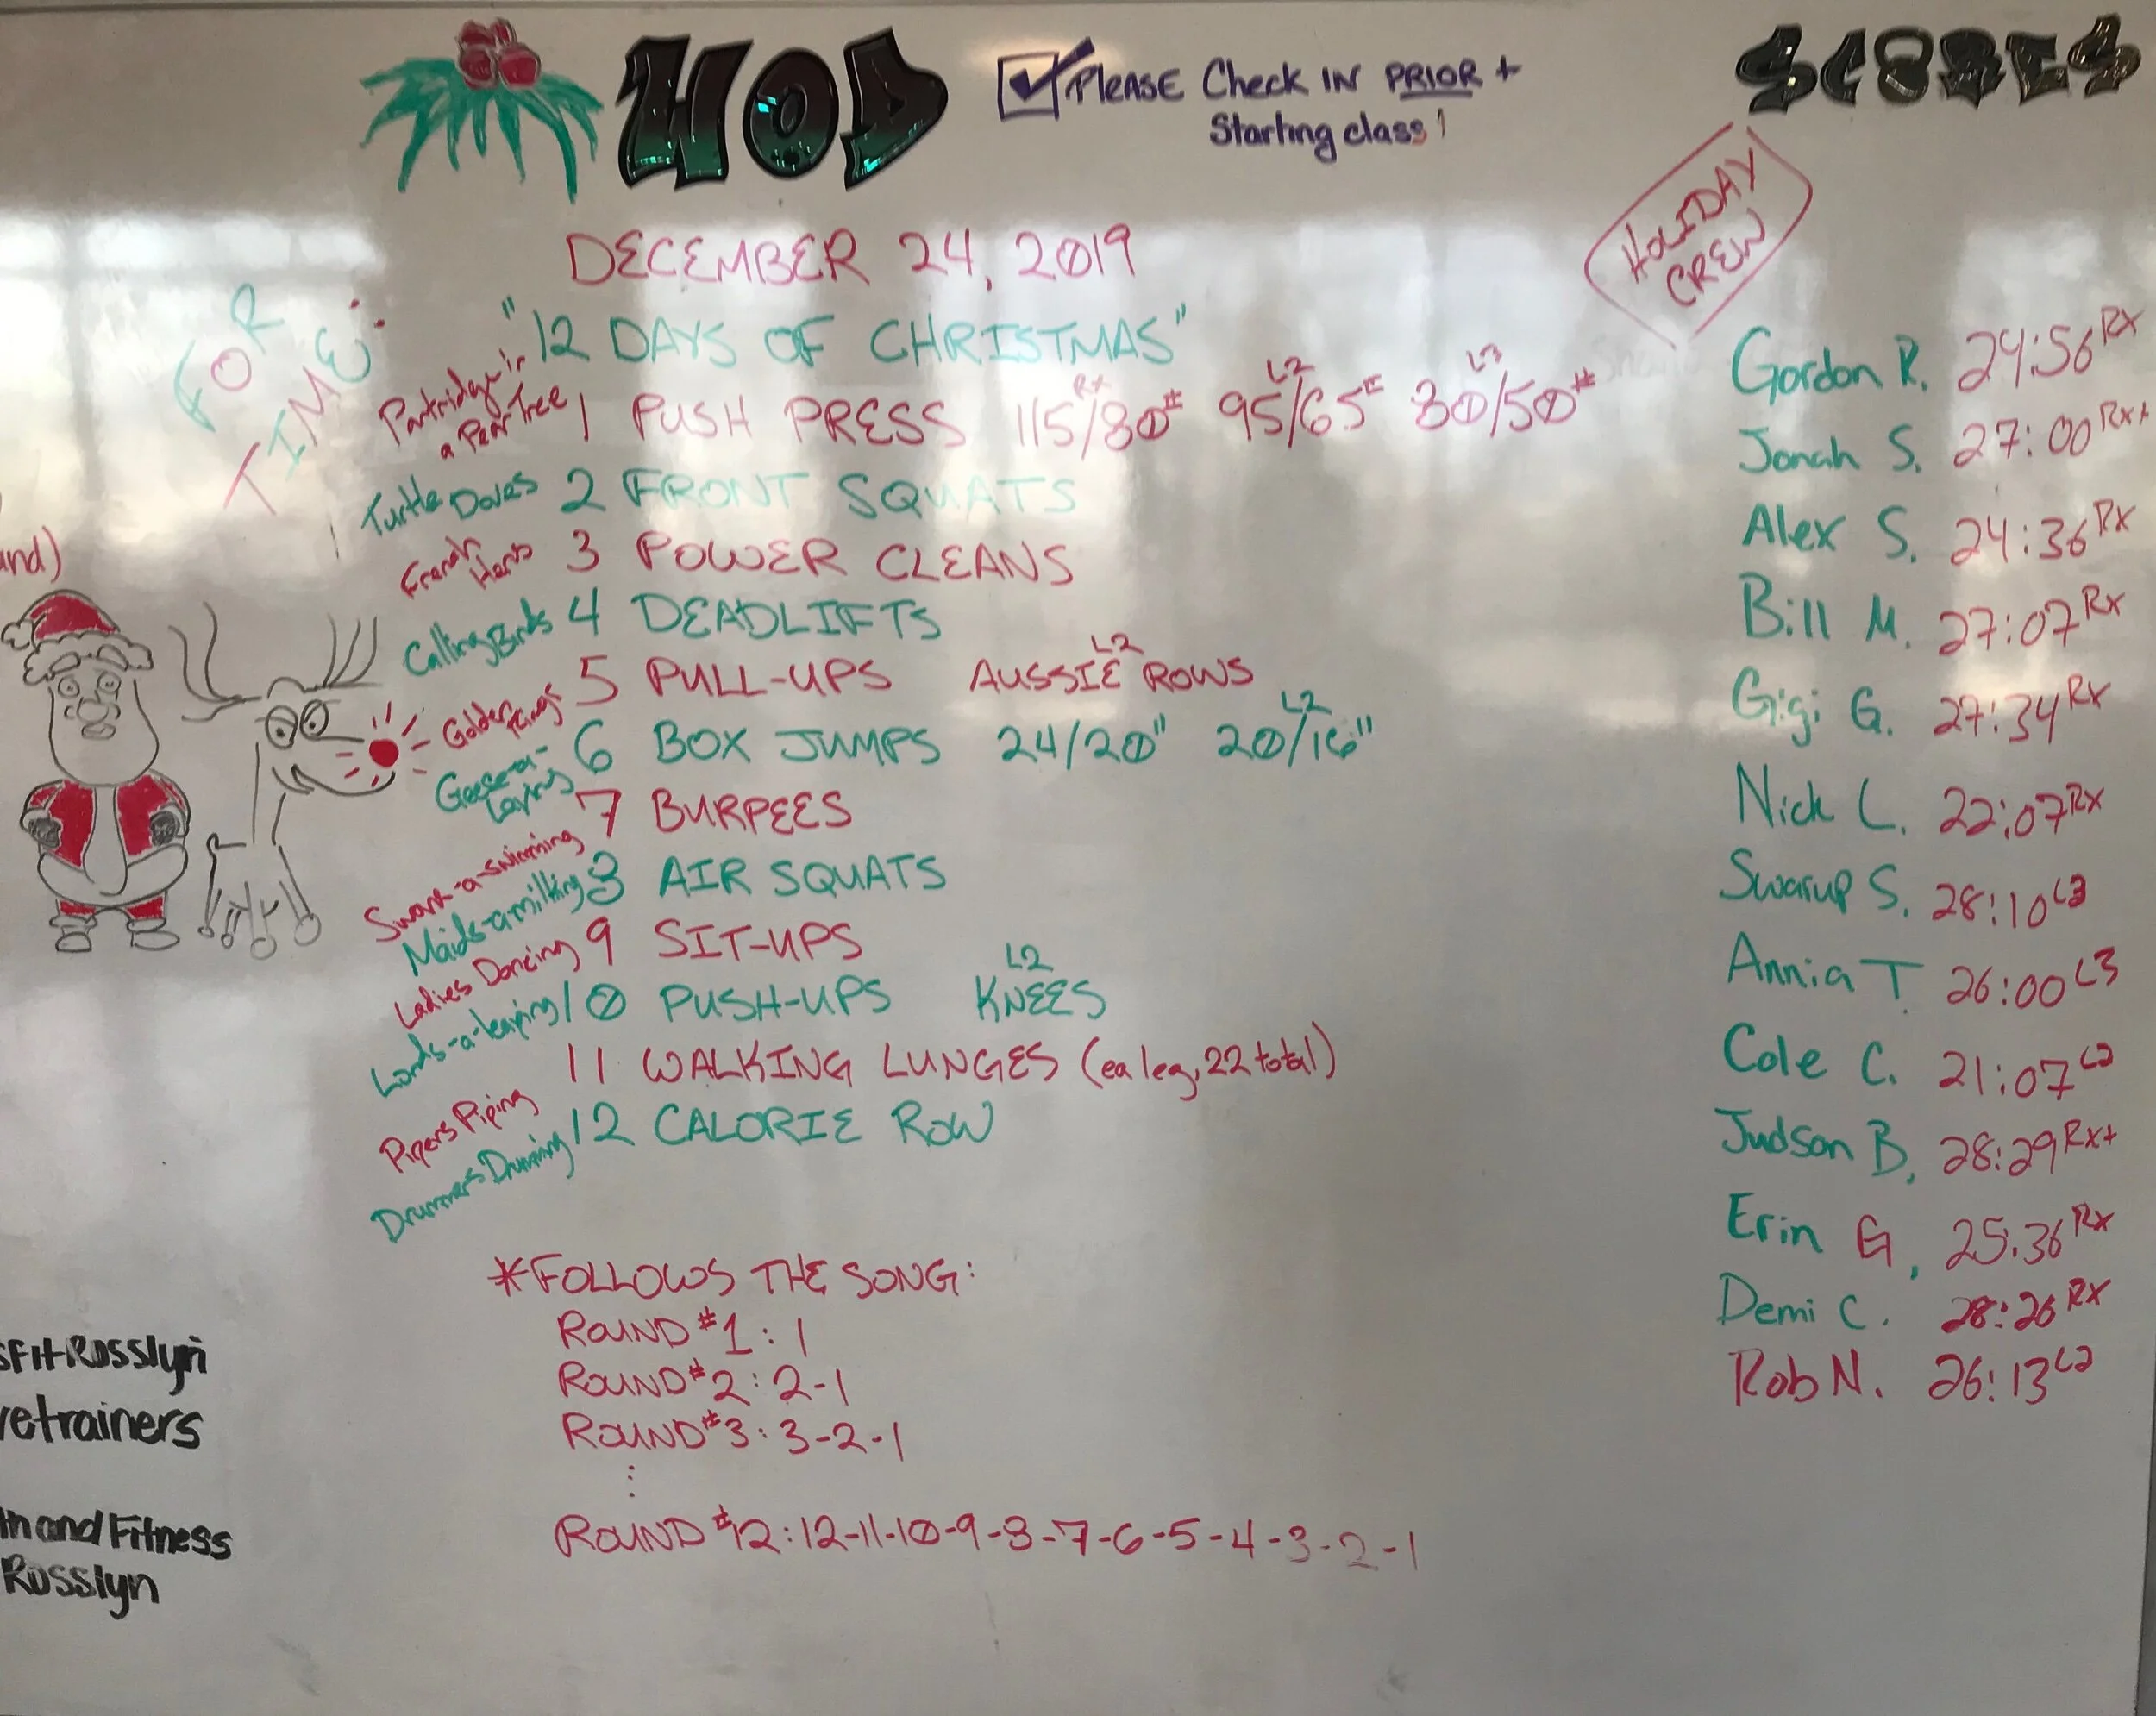 WOD
☑ Please Check IN PRIOR +
Starting class!
DECEMBER 24, 2019
FOR
TIME:
"12 DAYS OF CHRISTMAS"
Partridge in
a Pear Tree
1 PUSH PRESS 115/80# Rx 95/65# L2 80/50# L3
Turtle Doves 2 FRONT SQUATS
French
Hens
3 POWER CLEANS
Calling Birds 4 DEADLIFTS
Golden
Rings
5 PULL-UPS L2 AUSSIE ROWS
Geese-a-
Laying
6 BOX JUMPS 24/20" L2 20/16"
Swans-a-swimming 7 BURPEES
Maids-a-milking 8 AIR SQUATS
Ladies Dancing 9 SIT-UPS
Lords-a-leaping 10 PUSH-UPS L2 KNEES
Pipers Piping 11 WALKING LUNGES (ea leg, 22 total)
Drummers Drumming 12 CALORIE ROW
*FOLLOWS THE SONG:
ROUND #1: 1
ROUND #2: 2-1
ROUND #3: 3-2-1
⋮
ROUND #12: 12-11-10-9-8-7-6-5-4-3-2-1
SCORES
HOLIDAY
CREW
Gordon R. 24:56 Rx
Jonah S. 27:00 Rx+
Alex S. 24:36 Rx
Bill M. 27:07 Rx
Gigi G. 27:34 Rx
Nick L. 22:07 Rx
Swarup S. 28:10 L3
Annia T. 26:00 L3
Cole C. 21:07 L2
Judson B. 28:29 Rx+
Erin G, 25:36 Rx
Demi C. 28:26 Rx
Rob N. 26:13 L2
and)
sFitRosslyn
retrainers
th and Fitness
Rosslyn